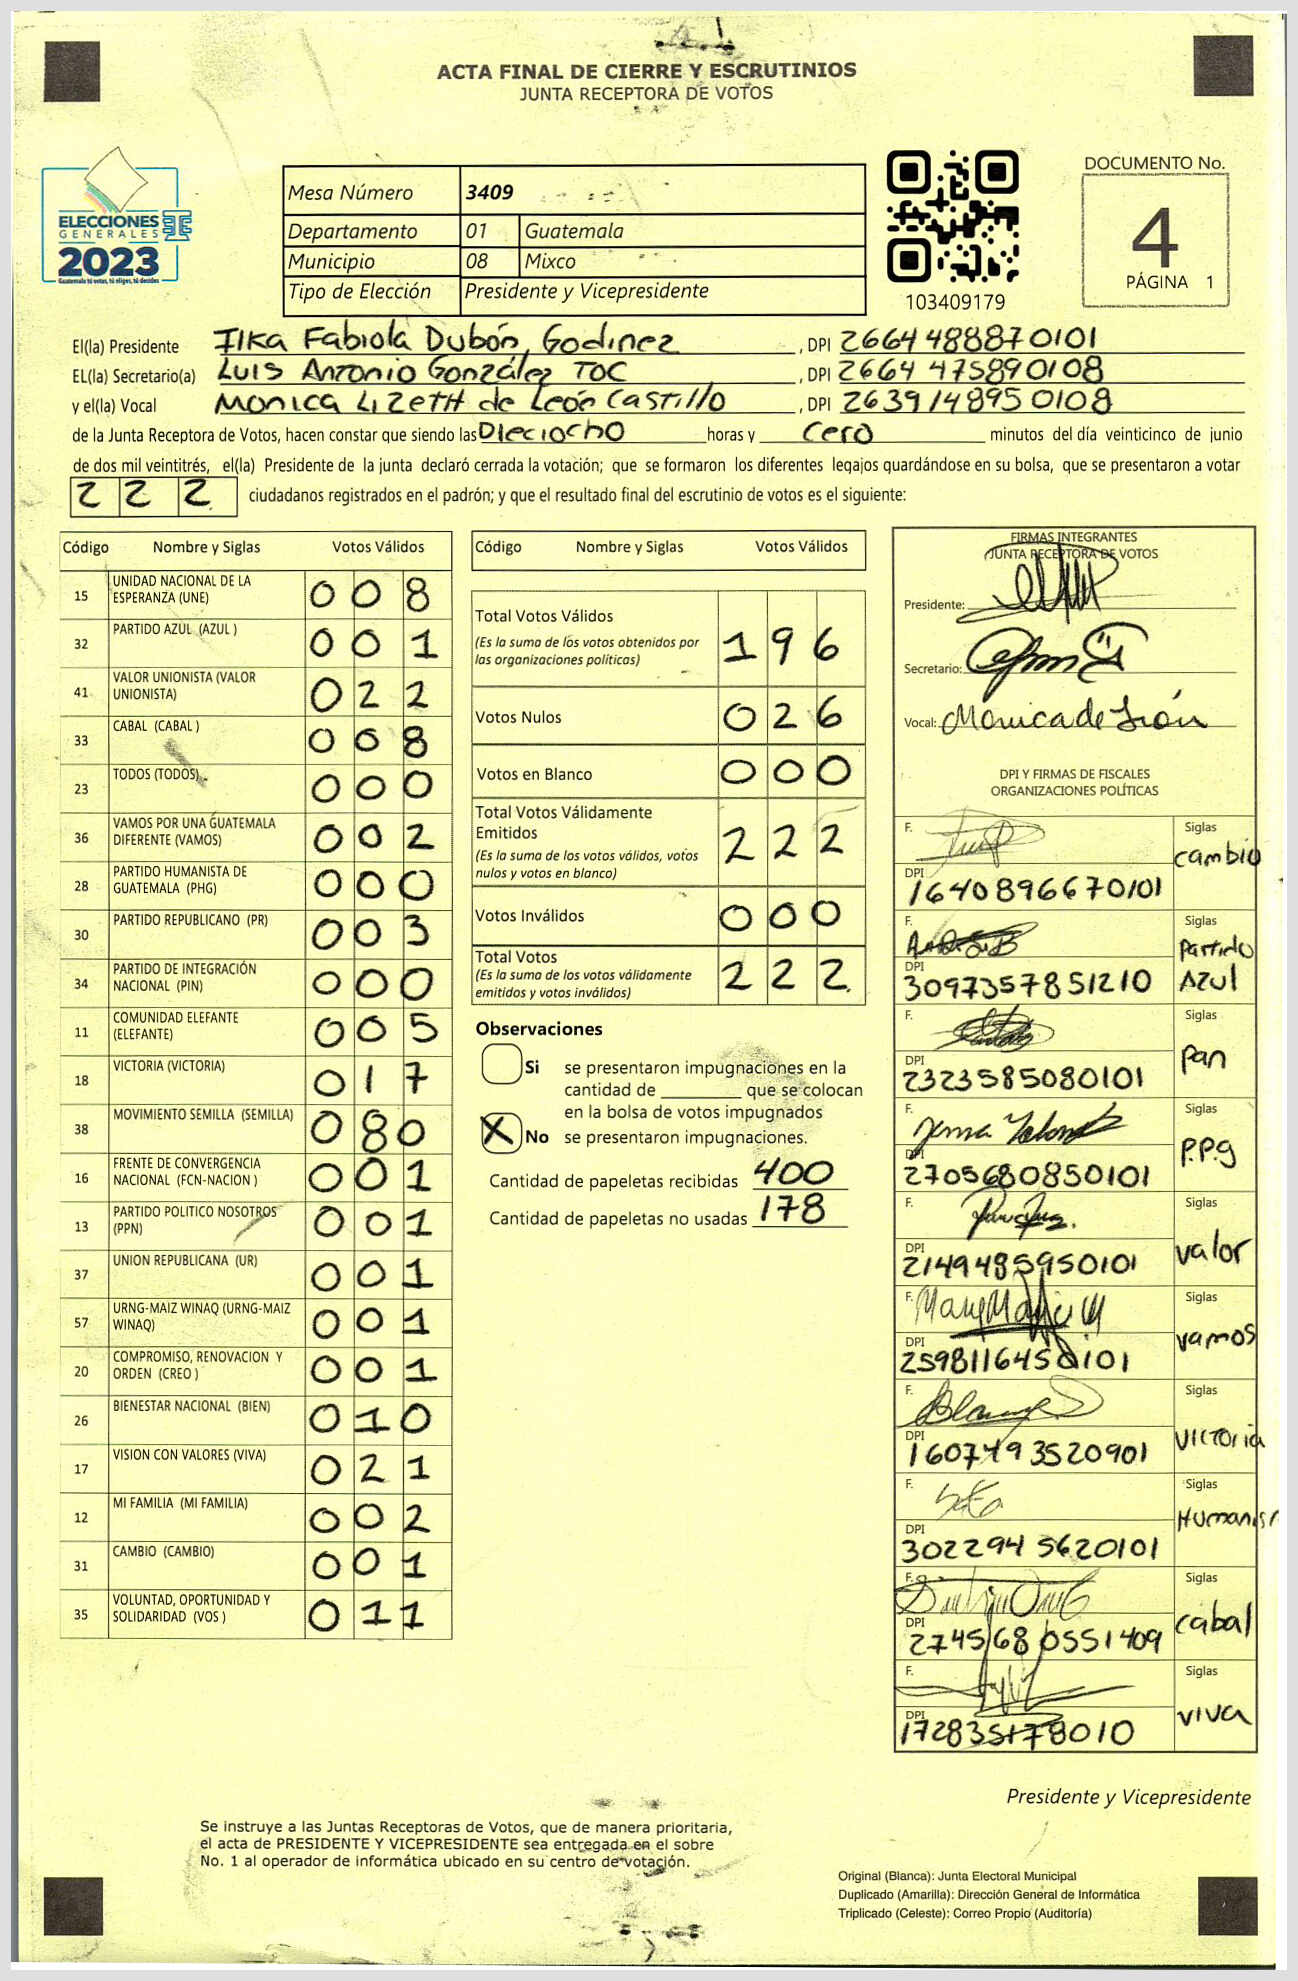 ACTA FINAL DE CIERRE Y ESCRUTINIOS
JUNTA RECEPTORA DE VOTOS
ELECCIONES
GENERALES
2023
Guatemala tú votas, tú eliges, tú decides
Mesa Número 3409
Departamento 01 Guatemala
Municipio 08 Mixco
Tipo de Elección Presidente y Vicepresidente
103409179
DOCUMENTO No.
4
PÁGINA 1
El(la) Presidente Ilka Fabiola Dubón Godinez, DPI 2664488870101
EL(la) Secretario(a) Luis Antonio González TOC, DPI 2664475890108
y el(la) Vocal Monica Lizeth de León Castillo, DPI 2639148950108
de la Junta Receptora de Votos, hacen constar que siendo las Dieciocho horas y cero minutos del día veinticinco de junio
de dos mil veintitrés, el(la) Presidente de la junta declaró cerrada la votación; que se formaron los diferentes legajos guardándose en su bolsa, que se presentaron a votar
222 ciudadanos registrados en el padrón; y que el resultado final del escrutinio de votos es el siguiente:
Código Nombre y Siglas Votos Válidos
15 UNIDAD NACIONAL DE LA ESPERANZA (UNE) 008
32 PARTIDO AZUL (AZUL ) 001
41 VALOR UNIONISTA (VALOR UNIONISTA) 022
33 CABAL (CABAL ) 008
23 TODOS (TODOS) 000
36 VAMOS POR UNA GUATEMALA DIFERENTE (VAMOS) 002
28 PARTIDO HUMANISTA DE GUATEMALA (PHG) 000
30 PARTIDO REPUBLICANO (PR) 003
34 PARTIDO DE INTEGRACIÓN NACIONAL (PIN) 000
11 COMUNIDAD ELEFANTE (ELEFANTE) 005
18 VICTORIA (VICTORIA) 017
38 MOVIMIENTO SEMILLA (SEMILLA) 080
16 FRENTE DE CONVERGENCIA NACIONAL (FCN-NACION ) 001
13 PARTIDO POLITICO NOSOTROS (PPN) 001
37 UNION REPUBLICANA (UR) 001
57 URNG-MAIZ WINAQ (URNG-MAIZ WINAQ) 001
20 COMPROMISO, RENOVACION Y ORDEN (CREO ) 001
26 BIENESTAR NACIONAL (BIEN) 010
17 VISION CON VALORES (VIVA) 021
12 MI FAMILIA (MI FAMILIA) 002
31 CAMBIO (CAMBIO) 001
35 VOLUNTAD, OPORTUNIDAD Y SOLIDARIDAD (VOS ) 011
Código Nombre y Siglas Votos Válidos
Total Votos Válidos 196
(Es la suma de los votos obtenidos por
las organizaciones políticas)
Votos Nulos 026
Votos en Blanco 000
Total Votos Válidamente
Emitidos 222
(Es la suma de los votos válidos, votos
nulos y votos en blanco)
Votos Inválidos 000
Total Votos 222
(Es la suma de los votos válidamente
emitidos y votos inválidos)
Observaciones
Si se presentaron impugnaciones en la
cantidad de ________ que se colocan
en la bolsa de votos impugnados
X No se presentaron impugnaciones.
Cantidad de papeletas recibidas 400
Cantidad de papeletas no usadas 178
FIRMAS INTEGRANTES
JUNTA RECEPTORA DE VOTOS
Presidente:
Secretario:
Vocal: Monica de León
DPI Y FIRMAS DE FISCALES
ORGANIZACIONES POLÍTICAS
F. Siglas cambio
DPI 1640896670101
F. Siglas Partido Azul
DPI 3097357851210
F. Siglas Pan
DPI 2323585080101
F. Siglas P.P.g
DPI 2705680850101
F. Siglas valor
DPI 2149485950101
F. Siglas vamos
DPI 2598116450101
F. Siglas VICTORIA
DPI 1607493520901
F. Siglas Humanis
DPI 3022945620101
F. Siglas cabal
DPI 2745680551409
F. Siglas viva
DPI 172835178010
Presidente y Vicepresidente
Se instruye a las Juntas Receptoras de Votos, que de manera prioritaria,
el acta de PRESIDENTE Y VICEPRESIDENTE sea entregada en el sobre
No. 1 al operador de informática ubicado en su centro de votación.
Original (Blanca): Junta Electoral Municipal
Duplicado (Amarilla): Dirección General de Informática
Triplicado (Celeste): Correo Propio (Auditoría)